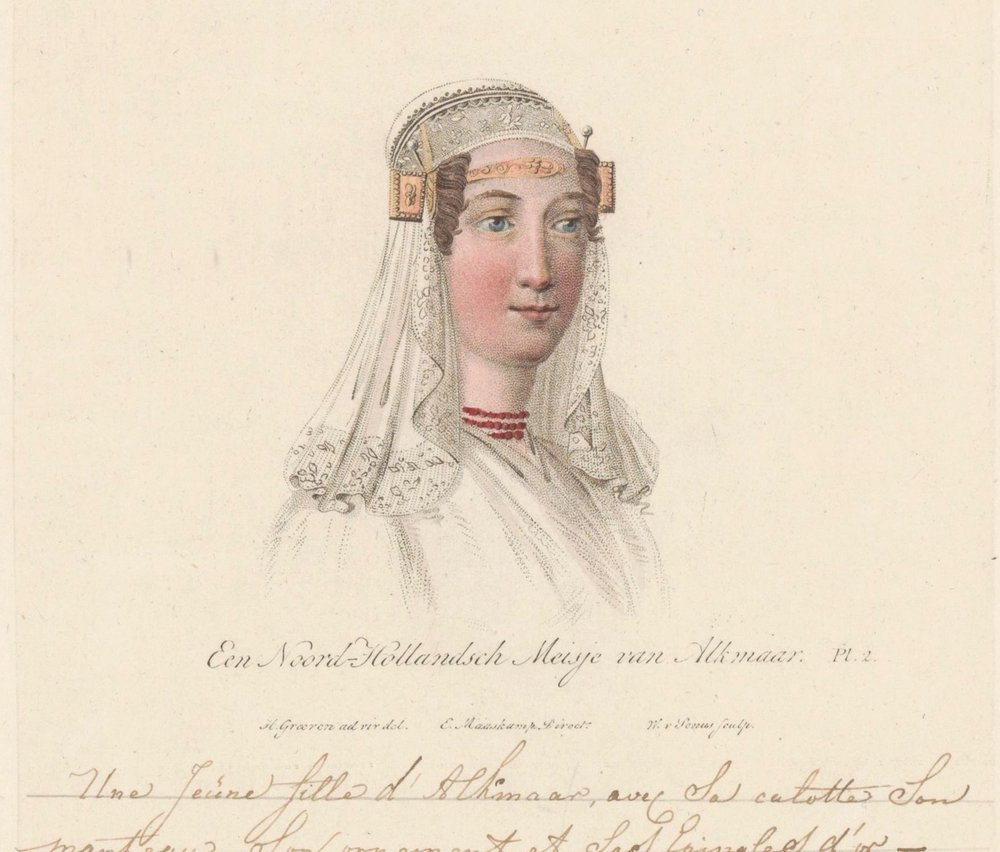 Een Noord-Hollandsch Meisje van Alkmaar. Pl. 2.
H. Greeven ad viv del. E. Maaskamp, Direct. W. v Senus sculp.
Une Jeüne fille d'Alkmaar, avec Sa calotte Son
manteau Son ornement et Ses Epingles d'or —